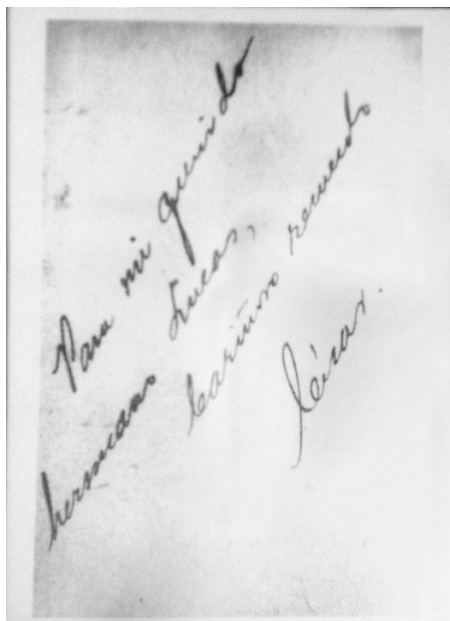 Para mi querido
hermano Lucas,
Cariñoso recuerdo
César.